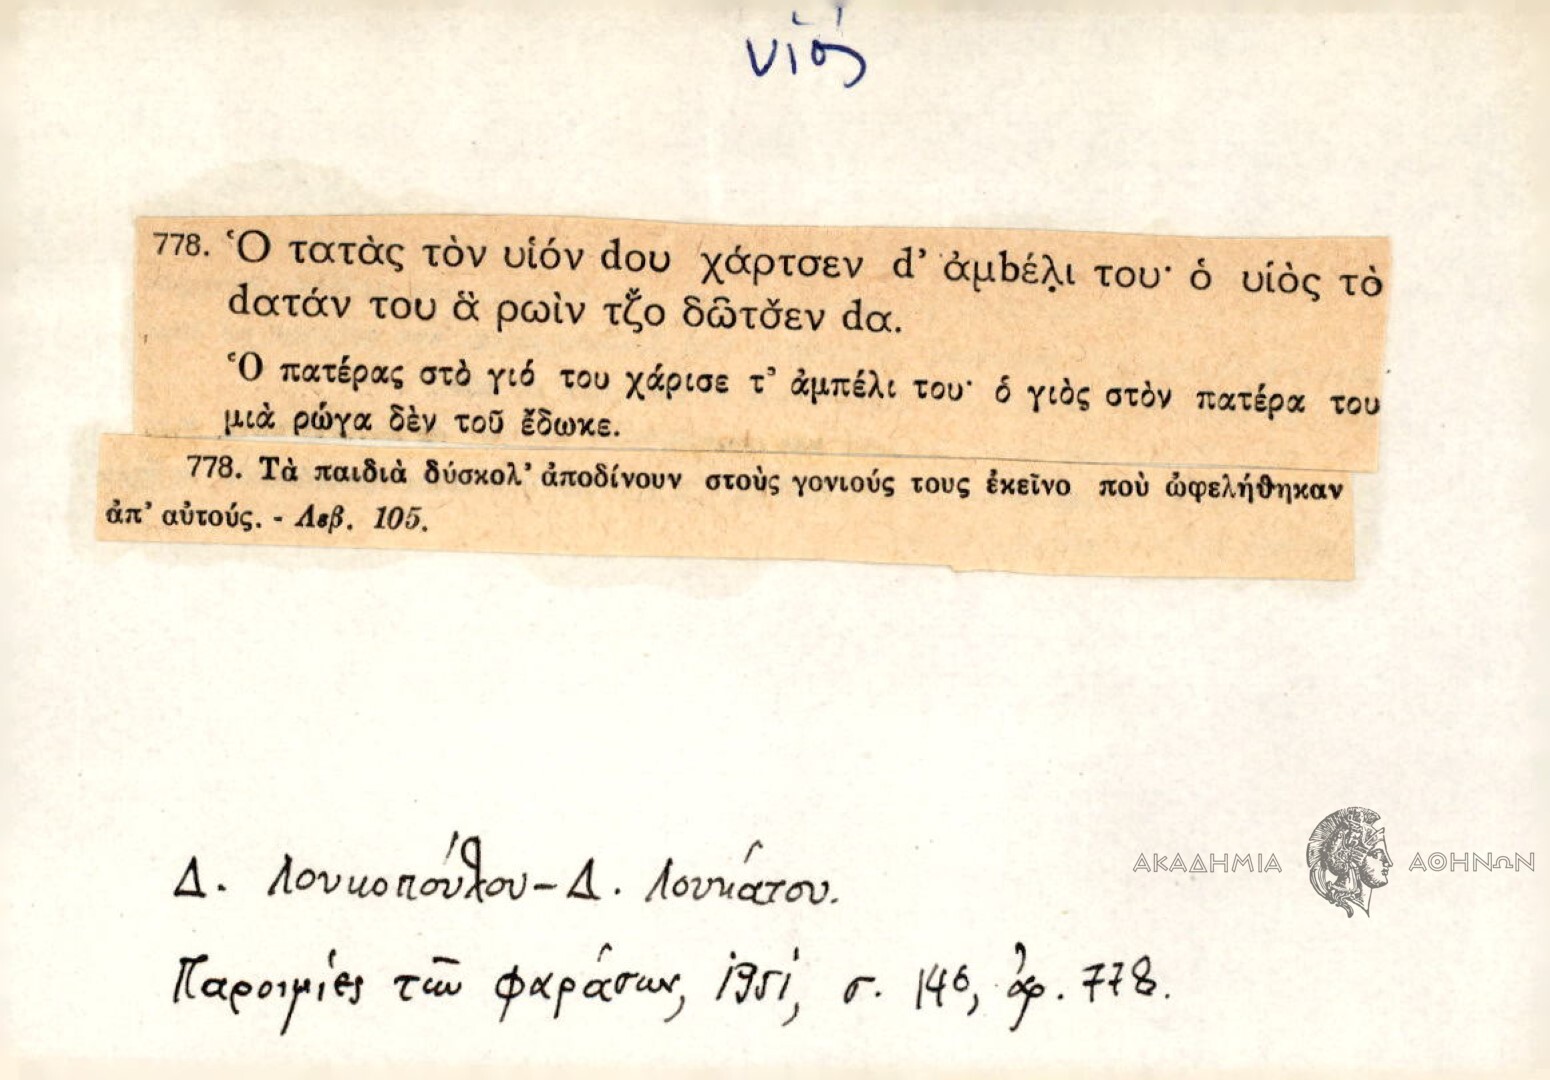 υἱός
778. Ὁ τατὰς τὸν υἱόν dου χάρτσεν d’ ἀμbέλ̣ι του· ὁ υἱὸς τὸ
dατάν του ἃ ρωὶν τζ̌ο δῶτσ̌εν dα.
Ὁ πατέρας στὸ γιό του χάρισε τ’ ἀμπέλι του· ὁ γιὸς στὸν πατέρα του
μιὰ ρώγα δὲν τοῦ ἔδωκε.
778. Τὰ παιδιὰ δύσκολ’ ἀποδίνουν στοὺς γονιούς τους ἐκεῖνο ποὺ ὠφελήθηκαν
ἀπ’ αὐτούς. - Λεβ. 105.
ΑΚΑΔΗΜΙΑ ΑΘΗΝΩΝ
Δ. Λουκοπούλου – Δ. Λουκάτου.
Παροιμίες τῶν Φαράσων, 1951, σ. 146, ἀρ. 778.